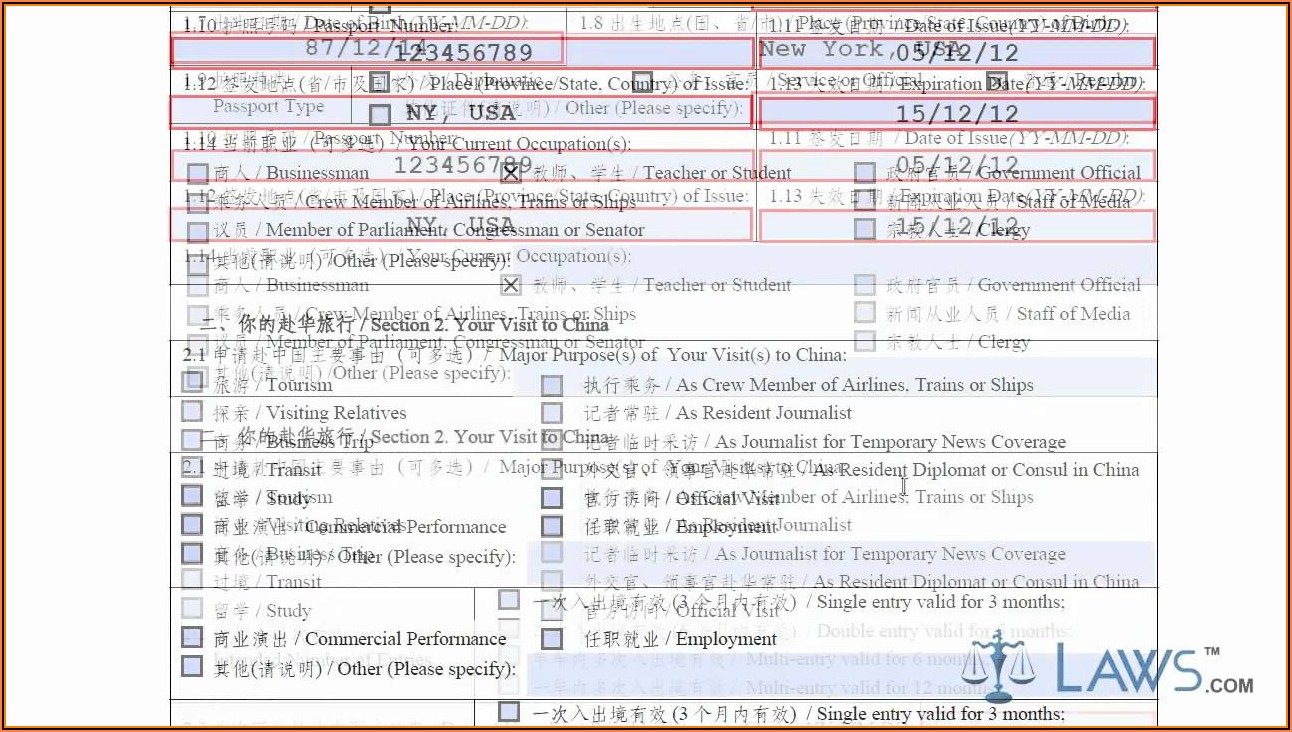 1.10 护照号码 / Passport Number:
1.8 出生地点(国、省/市) / Place(Province/State, Country) of Birth:
1.11 签发日期 / Date of Issue(YY-MM-DD):
87/12/14
123456789
New York, USA
05/12/12
1.12 签发地点(省/市及国家) / Place(Province/State, Country) of Issue:
1.13 失效日期 / Expiration Date(YY-MM-DD):
Passport Type
/ Other (Please specify):
NY, USA
15/12/12
1.14 当前职业(可多选) / Your Current Occupation(s):
1.11 签发日期 / Date of Issue(YY-MM-DD):
123456789
05/12/12
商人 / Businessman
教师、学生 / Teacher or Student
政府官员 / Government Official
1.12 签发地点(省/市及国家) / Place(Province/State, Country) of Issue:
1.13 失效日期 / Expiration Date(YY-MM-DD):
乘务人员 / Crew Member of Airlines, Trains or Ships
新闻从业人员 / Staff of Media
NY, USA
15/12/12
议员 / Member of Parliament, Congressman or Senator
宗教人士 / Clergy
1.14 当前职业(可多选) / Your Current Occupation(s):
其他(请说明) /Other (Please specify):
商人 / Businessman
教师、学生 / Teacher or Student
政府官员 / Government Official
乘务人员 / Crew Member of Airlines, Trains or Ships
新闻从业人员 / Staff of Media
二、你的赴华旅行 / Section 2. Your Visit to China
议员 / Member of Parliament, Congressman or Senator
宗教人士 / Clergy
2.1 申请赴中国主要事由(可多选) / Major Purpose(s) of Your Visit(s) to China:
其他(请说明) /Other (Please specify):
旅游 / Tourism
执行乘务 / As Crew Member of Airlines, Trains or Ships
探亲 / Visiting Relatives
记者常驻 / As Resident Journalist
二、你的赴华旅行 / Section 2. Your Visit to China
商务 / Business Trip
记者临时采访 / As Journalist for Temporary News Coverage
2.1 申请赴中国主要事由(可多选) / Major Purpose(s) of Your Visit(s) to China:
过境 / Transit
外交官、领事官赴华常驻 / As Resident Diplomat or Consul in China
旅游 / Tourism
执行乘务 / As Crew Member of Airlines, Trains or Ships
留学 / Study
官方访问 / Official Visit
探亲 / Visiting Relatives
记者常驻 / As Resident Journalist
商业演出 / Commercial Performance
任职就业 / Employment
商务 / Business Trip
记者临时采访 / As Journalist for Temporary News Coverage
其他(请说明) / Other (Please specify):
过境 / Transit
外交官、领事官赴华常驻 / As Resident Diplomat or Consul in China
一次入出境有效 (3 个月内有效) / Single entry valid for 3 months;
留学 / Study
官方访问 / Official Visit
Double entry valid for 6 months;
商业演出 / Commercial Performance
任职就业 / Employment
Intended Number of Entries
半年内多次入出境有效 / Multi-entry valid for 6 months
其他(请说明) / Other (Please specify):
一年内多次入出境有效 / Multi-entry valid for 12 months
LAWS™.COM
一次入出境有效 (3 个月内有效) / Single entry valid for 3 months;